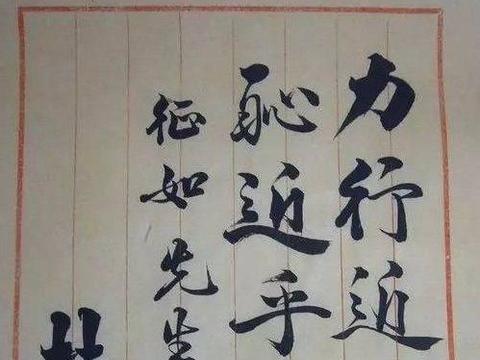 力行近
恥近乎
征如先生